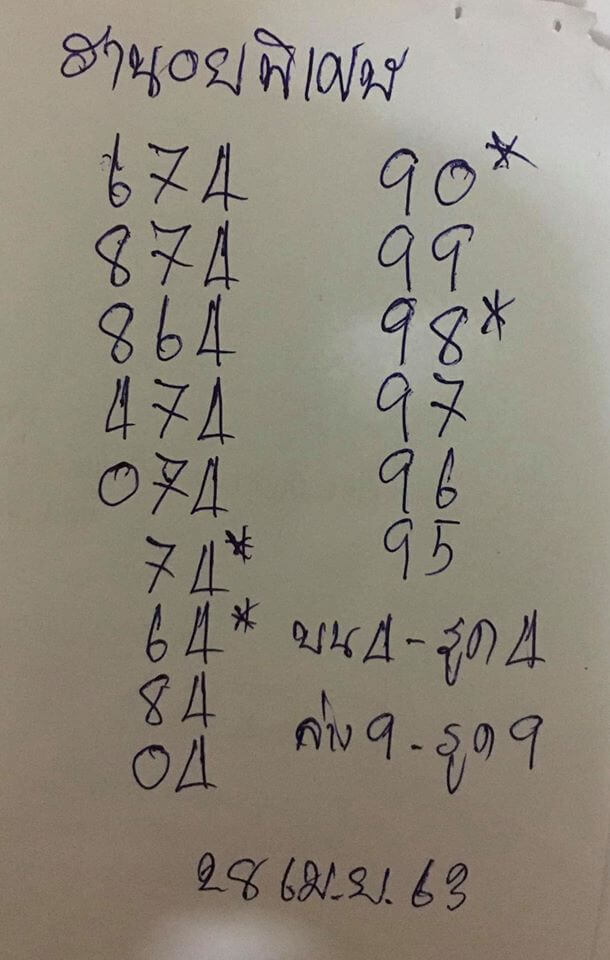 ฮานอยพิเศษ
674 90*
874 99
864 98*
474 97
074 96
74* 95
64* บน 4 - รูด 4
84
04 ล่าง 9 - รูด 9
28 เม.ย. 63